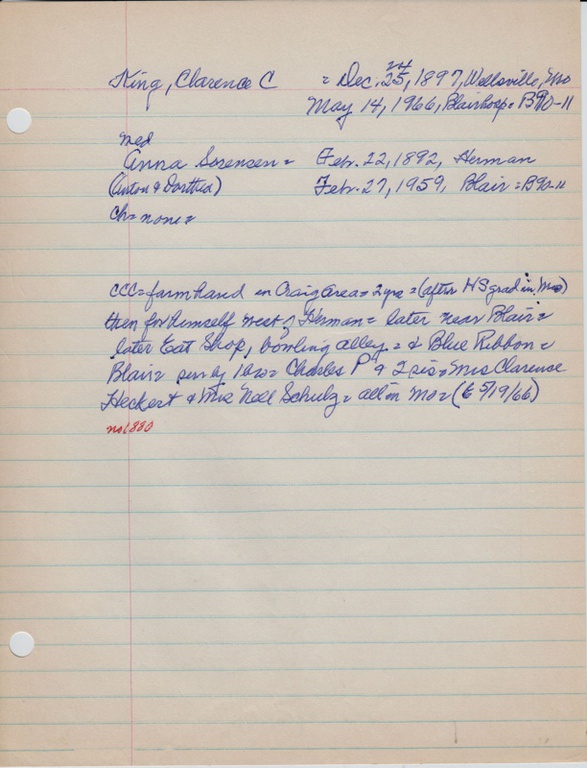 King, Clarence C = Dec. 24 25, 1897, Wellsville, Mo
May 14, 1966, Blair hosp = B90-11
med
Anna Sorensen = Feb. 22, 1892, Herman
(Anton & Dorthea) Feb. 27, 1959, Blair = B90-11
ch = none =
CCC = farmhand in Craig area = 2 yrs = (after HS grad in Mo)
then for himself west of Herman = later near Blair =
later Eat Shop, bowling alley = & Blue Ribbon =
Blair = surv by 1 bro = Charles P & 2 sis = Mrs Clarence
Heckert & Mrs Noll Schulz = all in Mo = (E 5/19/66)
no 1880